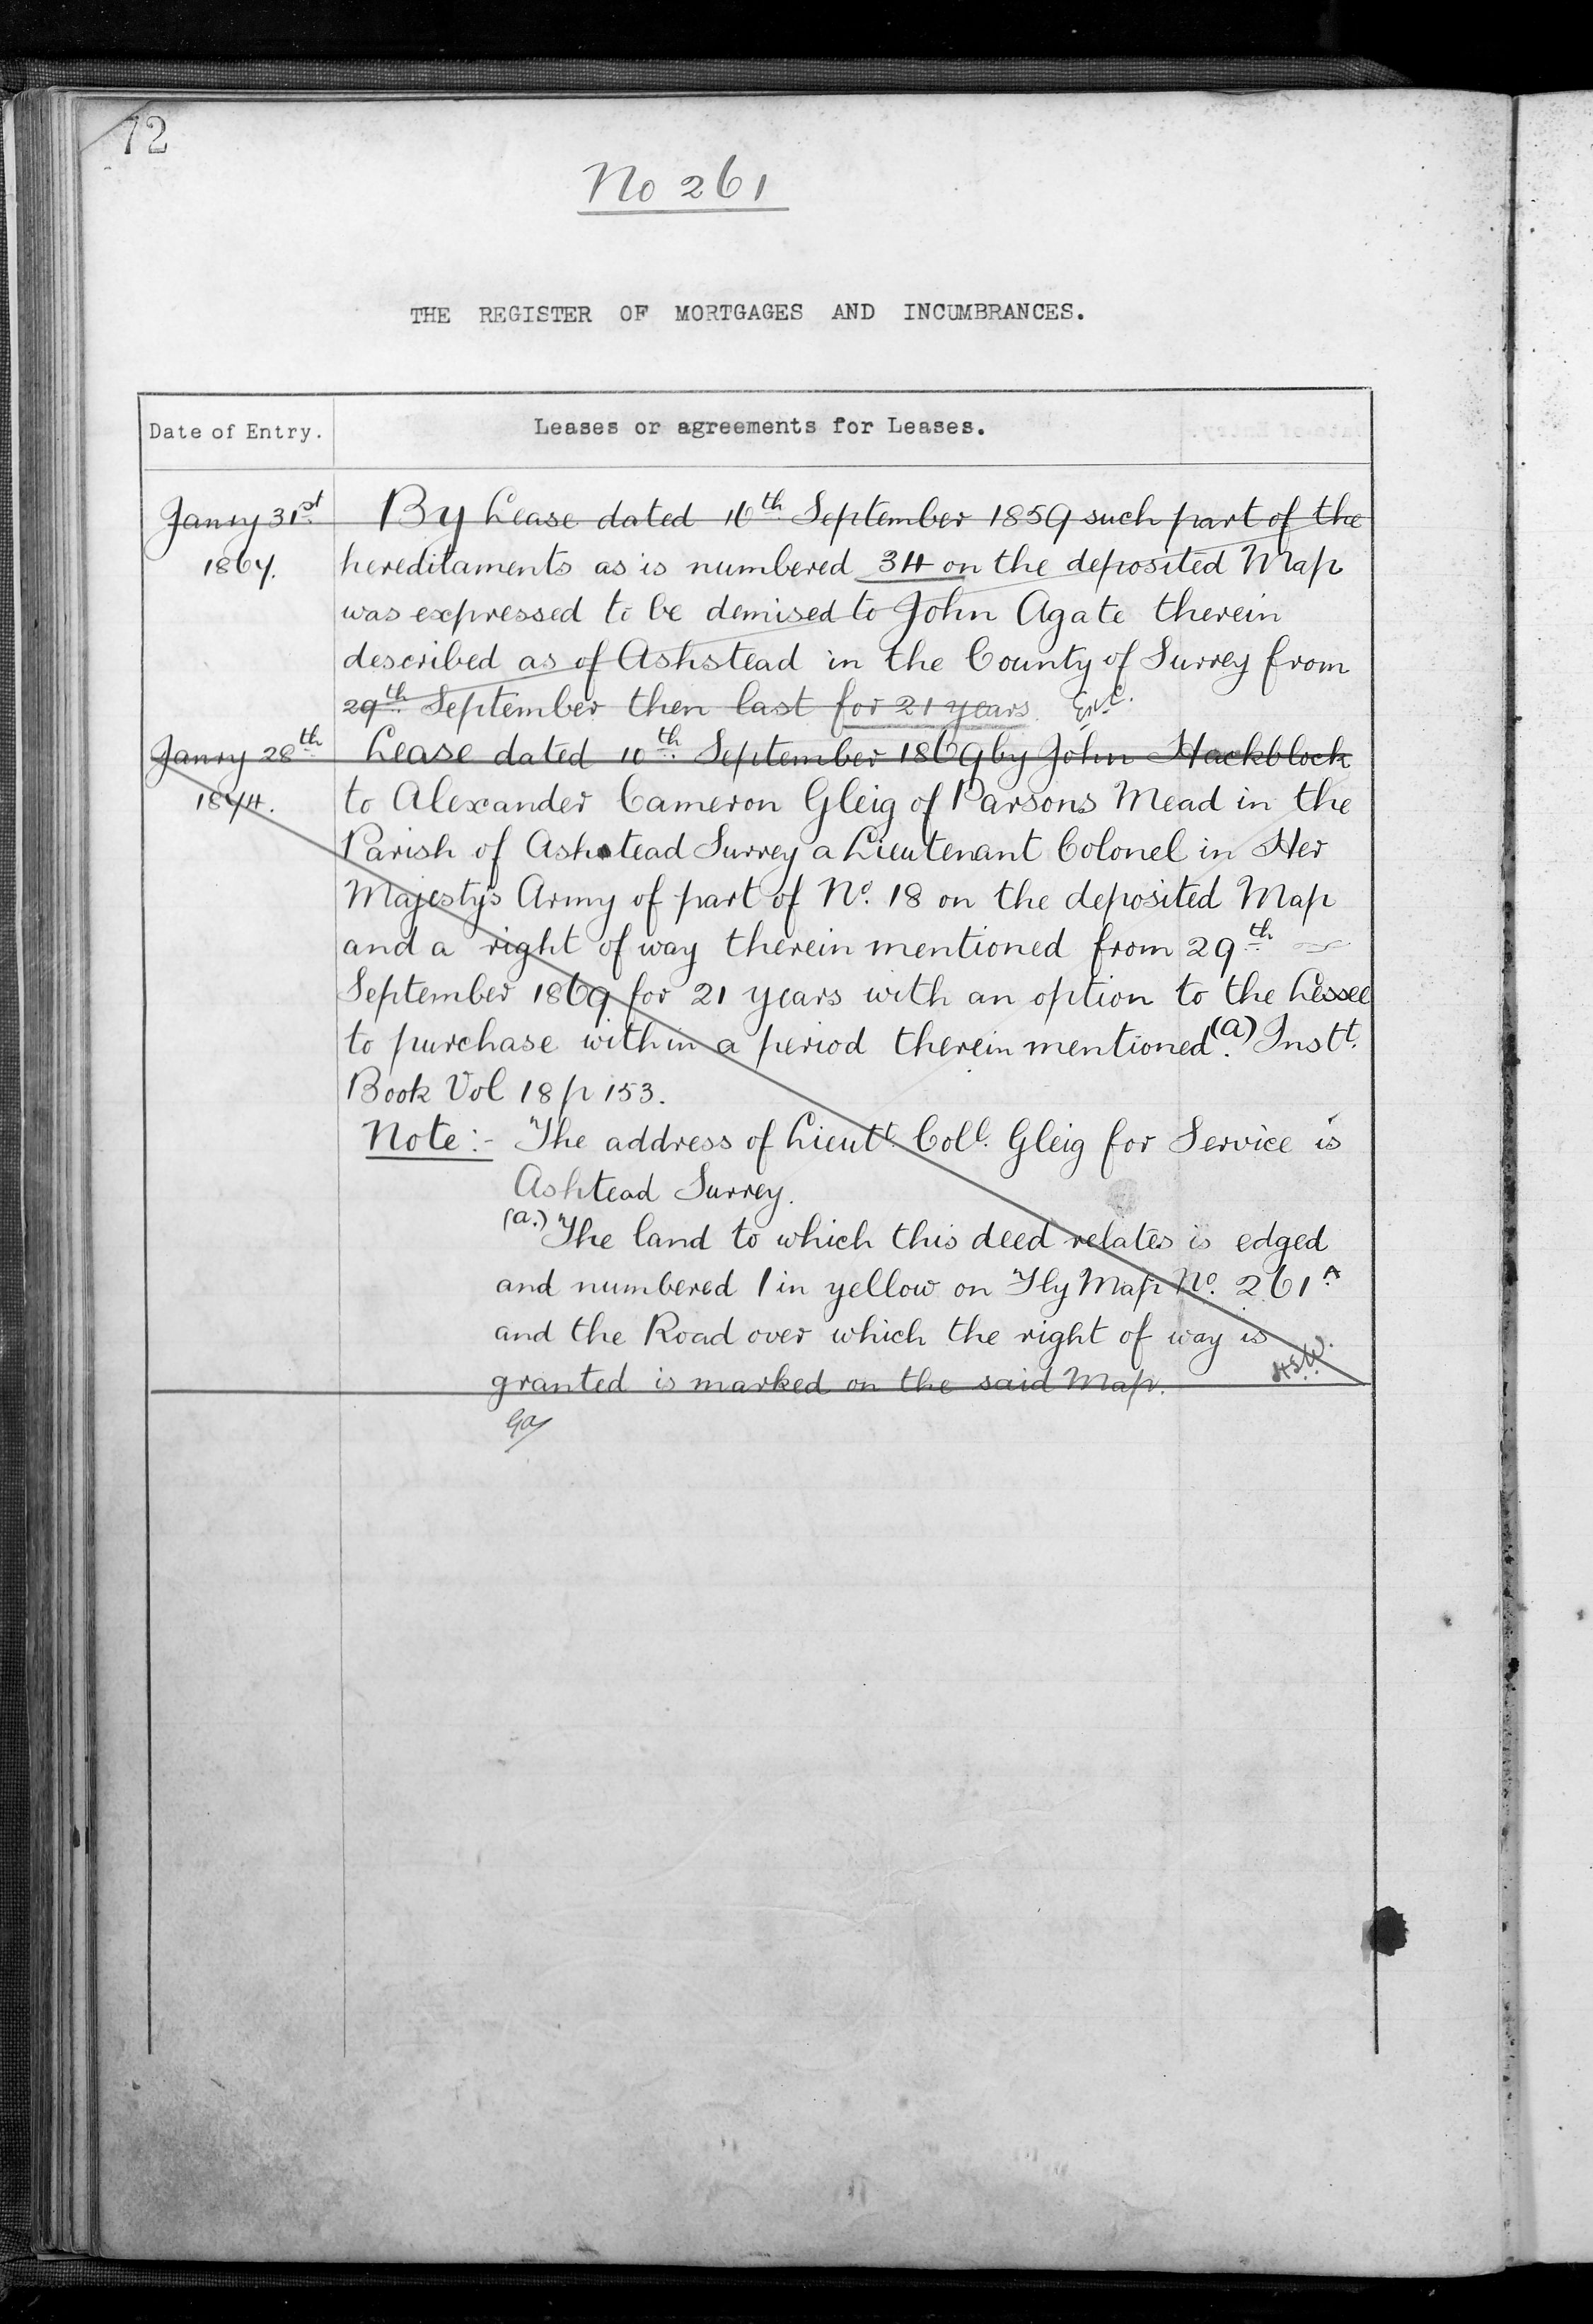 72
No 261
THE REGISTER OF MORTGAGES AND INCUMBRANCES.
Date of Entry.
Leases or agreements for Leases.
Janry 31st
1867.
By Lease dated 16th September 1859 such part of the
hereditaments as is numbered 34 on the deposited Map
was expressed to be demised to John Agate therein
described as of Ashstead in the County of Surrey from
29th September then last for 21 years.
Janry 28th
1874.
Lease dated 10th September 1869 by John Hackblock
to Alexander Cameron Gleig of Parsons Mead in the
Parish of Ashtead Surrey a Lieutenant Colonel in Her
Majestys Army of part of No. 18 on the deposited Map
and a right of way therein mentioned from 29th
September 1869 for 21 years with an option to the Lessee
to purchase within a period therein mentioned.(a) Instt.
Book Vol 18 p 153.
Note:- The address of Lieutt. Coll. Gleig for Service is
Ashtead Surrey.
(a.) The land to which this deed relates is edged
and numbered 1 in yellow on Fly Map No. 261A
and the Road over which the right of way is
granted is marked on the said Map.
H.S.W.